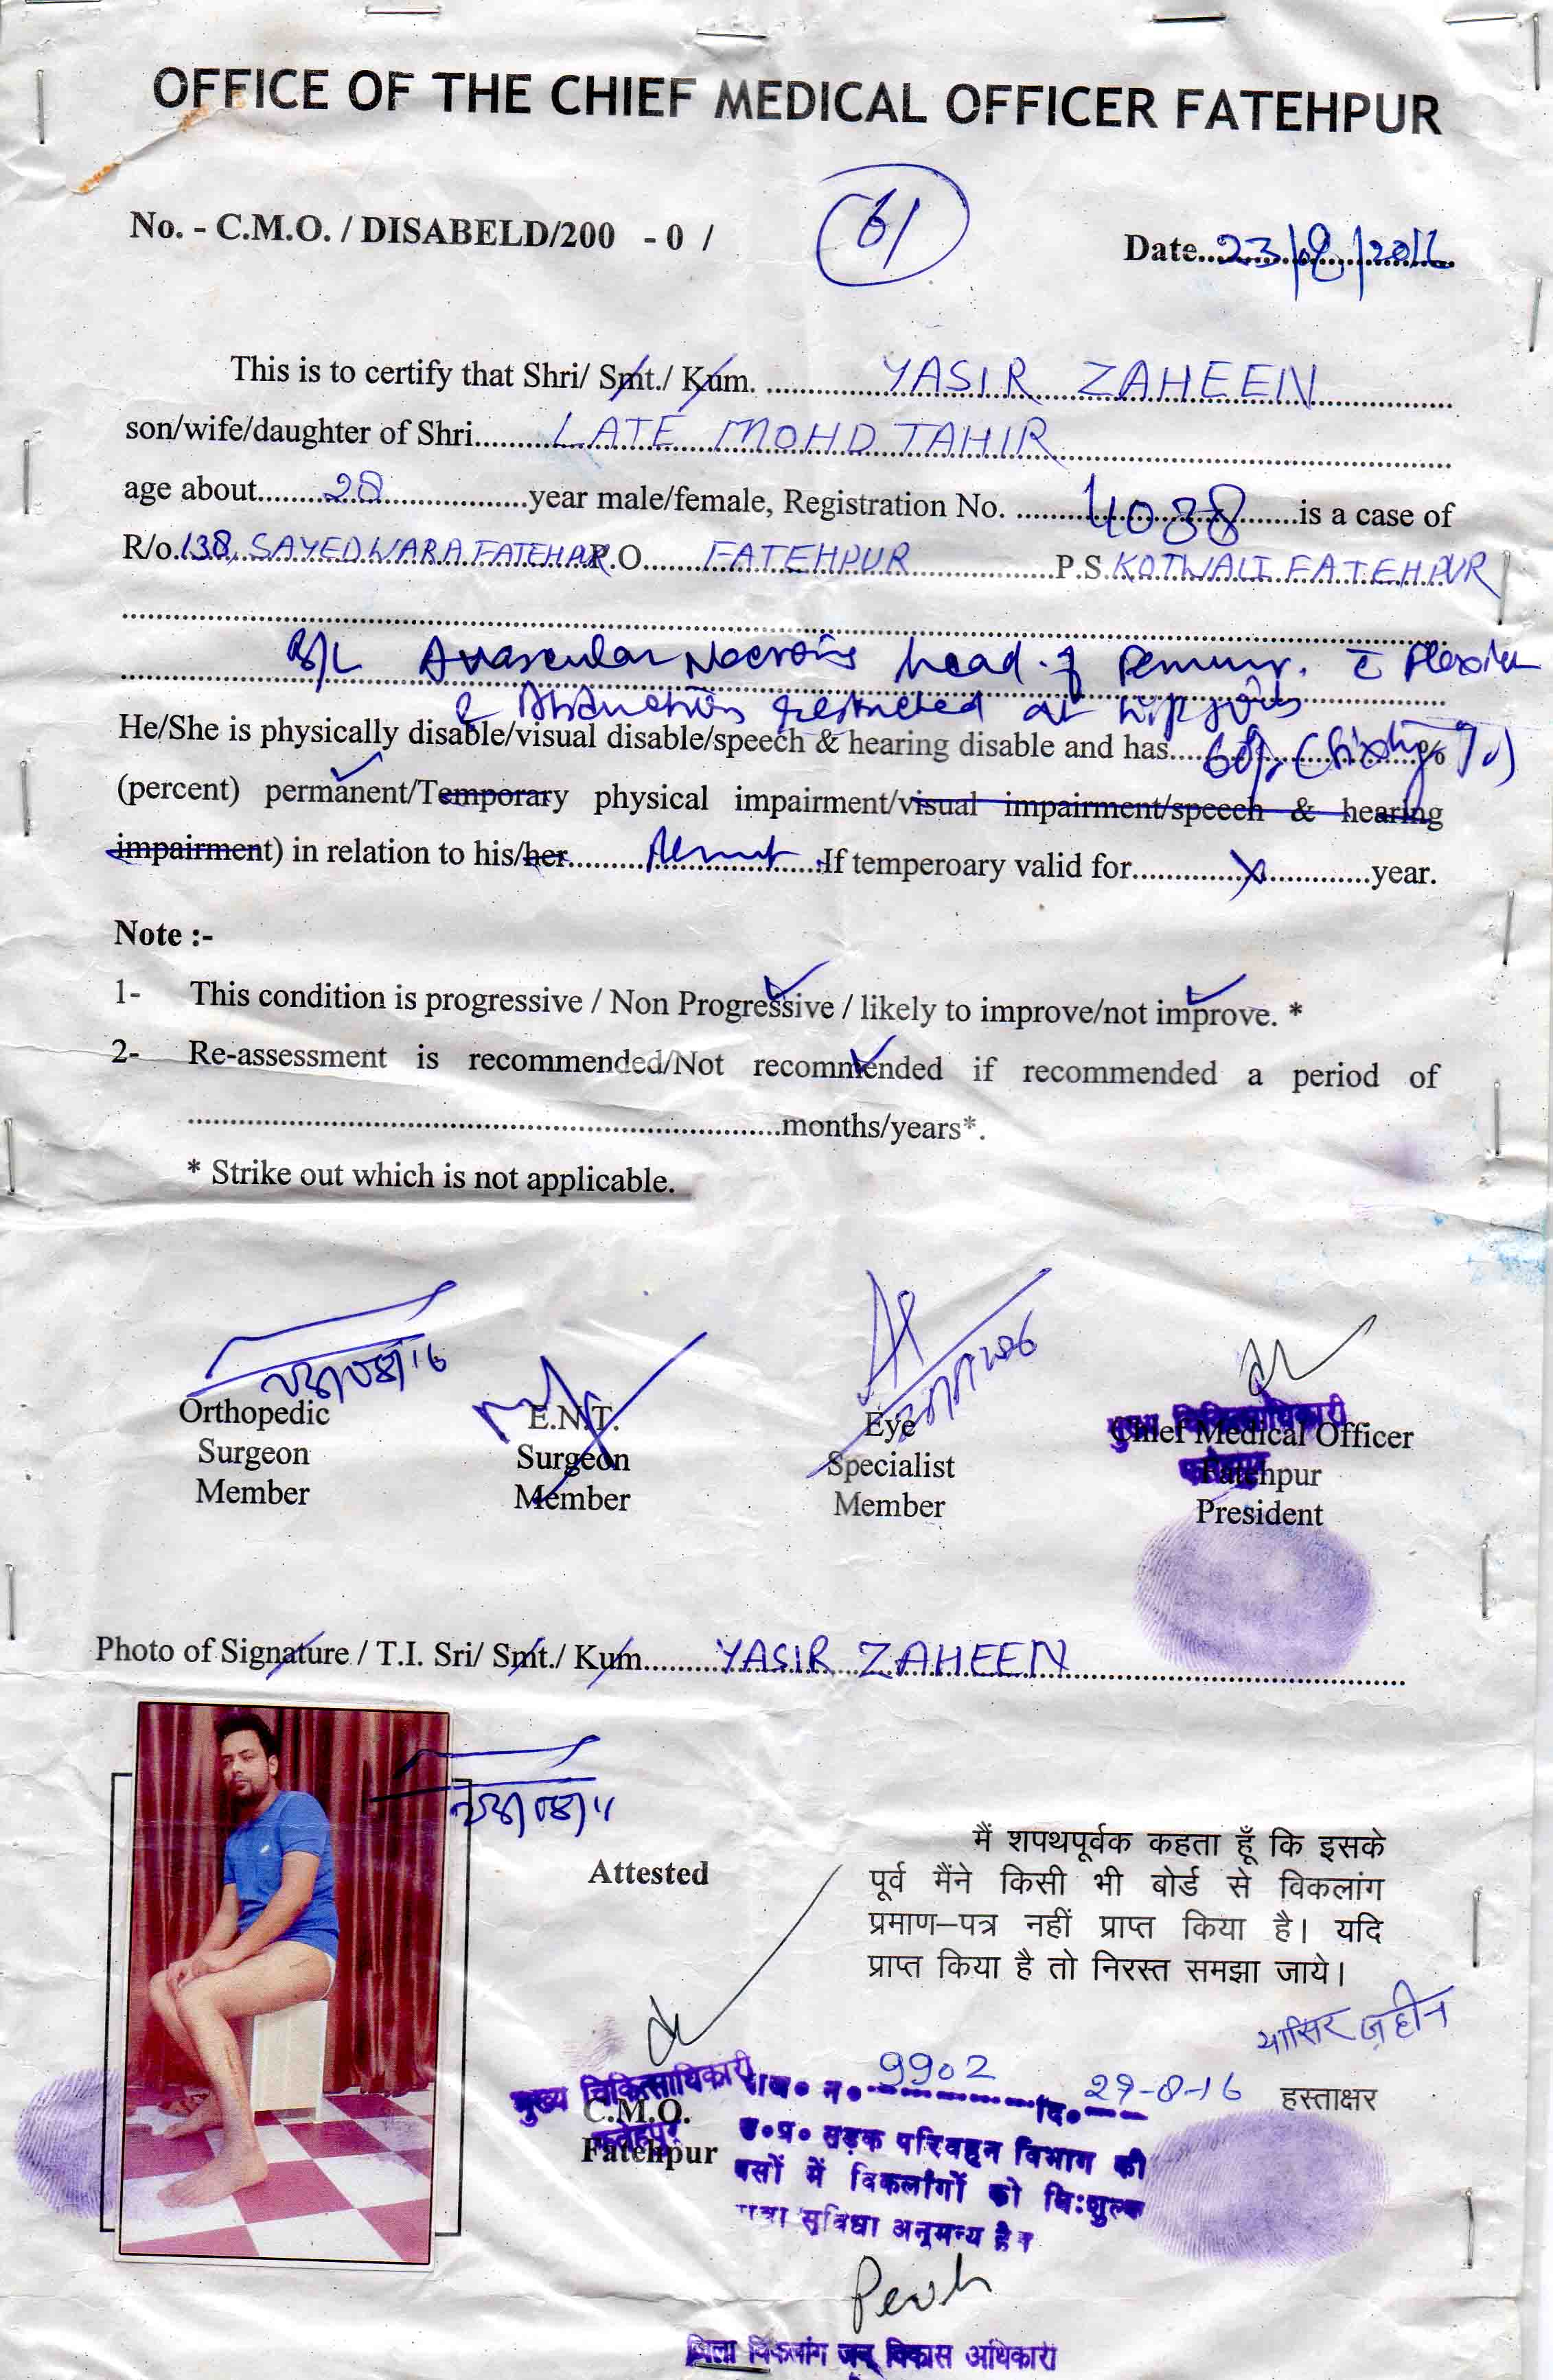 OFFICE OF THE CHIEF MEDICAL OFFICER FATEHPUR
No. - C.M.O. / DISABELD/200 - 0 / 61 Date..23/08/2016
This is to certify that Shri/ Smt./ Kum. YASIR ZAHEEN
son/wife/daughter of Shri LATE MOHD TAHIR
age about 28 year male/female, Registration No. 4038 is a case of
R/o. 138, SAYEDWARA FATEHPUR P.O. FATEHPUR P.S. KOTWALI FATEHPUR
B/L Avascular Necrosis head of Femur. c̄ Flexion
& Abduction restricted at hip joints
He/She is physically disable/visual disable/speech & hearing disable and has 60% (Sixty %) %
(percent) permanent/Temporary physical impairment/visual impairment/speech & hearing
impairment) in relation to his/her If temperoary valid for X year.
Note :-
1- This condition is progressive / Non Progressive / likely to improve/not improve. *
2- Re-assessment is recommended/Not recommended if recommended a period of
months/years*.
* Strike out which is not applicable.
Orthopedic
Surgeon
Member
E.N.T.
Surgeon
Member
Eye
Specialist
Member
मुख्य चिकित्साधिकारी
Chief Medical Officer
फतेहपुर
Fatehpur
President
Photo of Signature / T.I. Sri/ Smt./ Kum. YASIR ZAHEEN
Attested
मैं शपथपूर्वक कहता हूँ कि इसके
पूर्व मैंने किसी भी बोर्ड से विकलांग
प्रमाण–पत्र नहीं प्राप्त किया है। यदि
प्राप्त किया है तो निरस्त समझा जाये।
यासिर ज़हीन
हस्ताक्षर
मुख्य चिकित्साधिकारी
C.M.O.
फतेहपुर
Fatehpur
न० 9902 दि० 29-8-16
उ०प्र० सड़क परिवहन विभाग की
बसों में विकलांगों को नि:शुल्क
सुविधा अनुमन्य है।
जिला विकलांग जन विकास अधिकारी